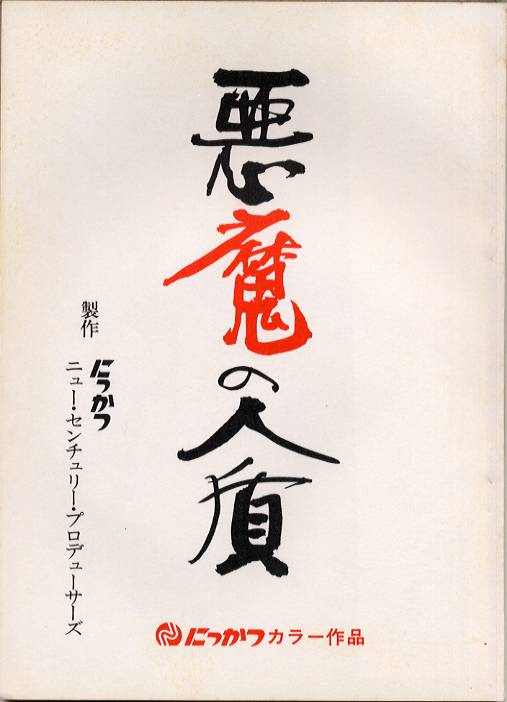 悪魔の人質
製作
にっかつ
ニュー・センチュリー・プロデューサーズ
にっかつカラー作品